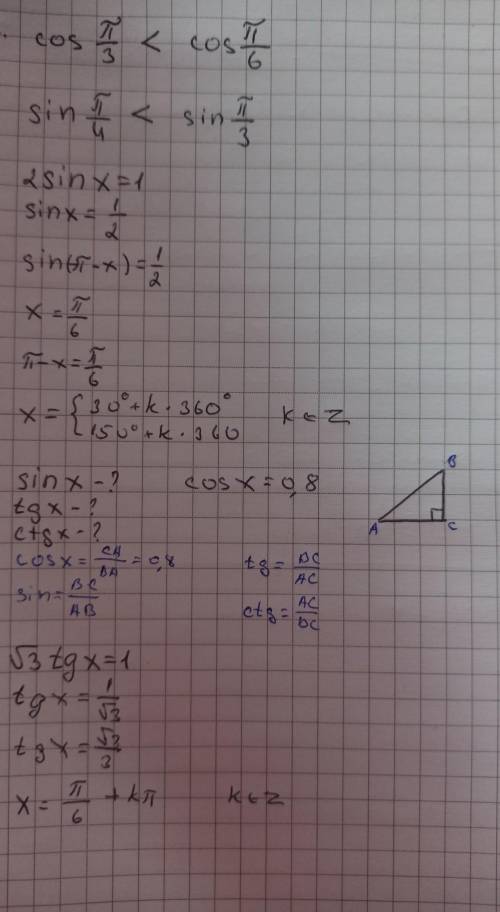 cos π/3 < cos π/6
sin π/4 < sin π/3
2sin x = 1
sin x = 1/2
sin(π-x) = 1/2
x = π/6
π-x = π/6
x = { 30° + k · 360°
150° + k · 360 k ∈ Z
sin x - ? cos x = 0,8
tg x - ?
ctg x - ?
cos x = CA/BA = 0,8 tg = BC/AC
sin = BC/AB ctg = AC/BC
B
A C
√3 tg x = 1
tg x = 1/√3
tg x = √3/3
x = π/6 + kπ k ∈ Z